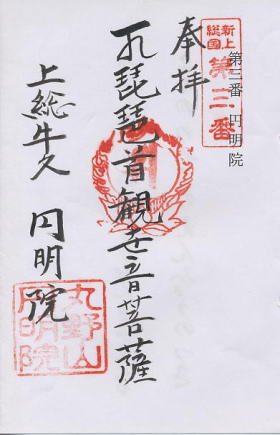 新上
総國
第三番
第三番 円明院
奉拝
琵琶首観世音菩薩
上総牛久 円明院
丸野山
円明院